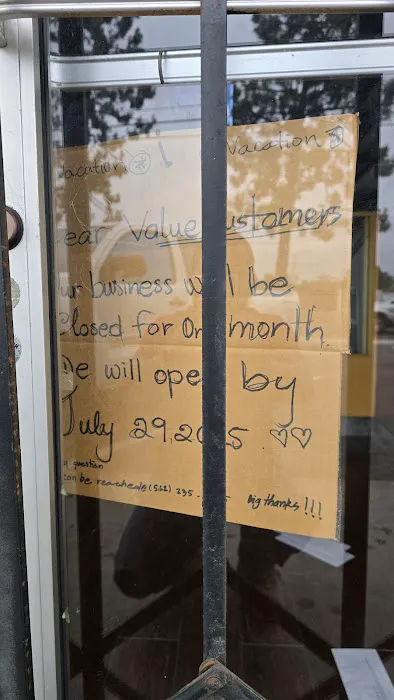 Vacation ! Vacation
ear Value ustomers
ur business w l be
Closed for On month.
We will ope by
July 29, 2 5 ♡♡
y question
can be reached (562) 235- 5 big thanks !!!